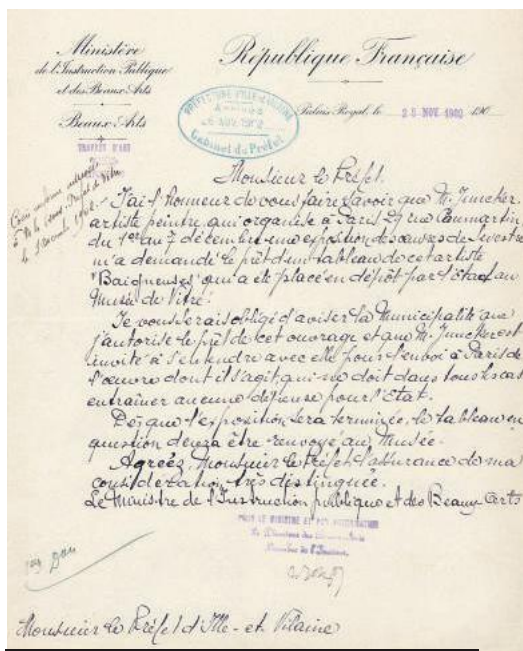 Ministère
de l'Instruction Publique
et des Beaux-Arts
Beaux-Arts
TRAVAUX D'ART
République Française
Palais Royal, le 25 NOV 1902 190
PREFECTURE D'ILLE-ET-VILAINE
Arrivée
26 NOV. 1902
Cabinet du Préfet
Copie conforme adressée
à M. le Sous-Préfet de Vitré
le 1902
Monsieur le Préfet,
J'ai l'honneur de vous faire savoir que M. Juncker,
artiste peintre, qui organise à Paris 29 rue Caumartin
du 1er au 7 décembre une exposition des œuvres de Sevestre
m'a demandé le prêt d'un tableau de cet artiste
"Baigneuses" qui a été placé en dépôt par l'Etat au
Musée de Vitré.
Je vous serais obligé d'aviser la Municipalité que
j'autorise le prêt de cet ouvrage et que M. Juncker est
invité à s'entendre avec elle pour l'envoi à Paris de
l'œuvre dont il s'agit, qui ne doit dans tous les cas
entraîner aucune dépense pour l'Etat.
Dès que l'exposition sera terminée, le tableau en
question devra être renvoyé au Musée.
Agréez, Monsieur le Préfet, l'assurance de ma
considération très distinguée.
Le Ministre de l'Instruction publique et des Beaux Arts
POUR LE MINISTRE ET PAR AUTORISATION
Le Directeur des Beaux-Arts
Membre de l'Institut,
Monsieur le Préfet d'Ille-et-Vilaine